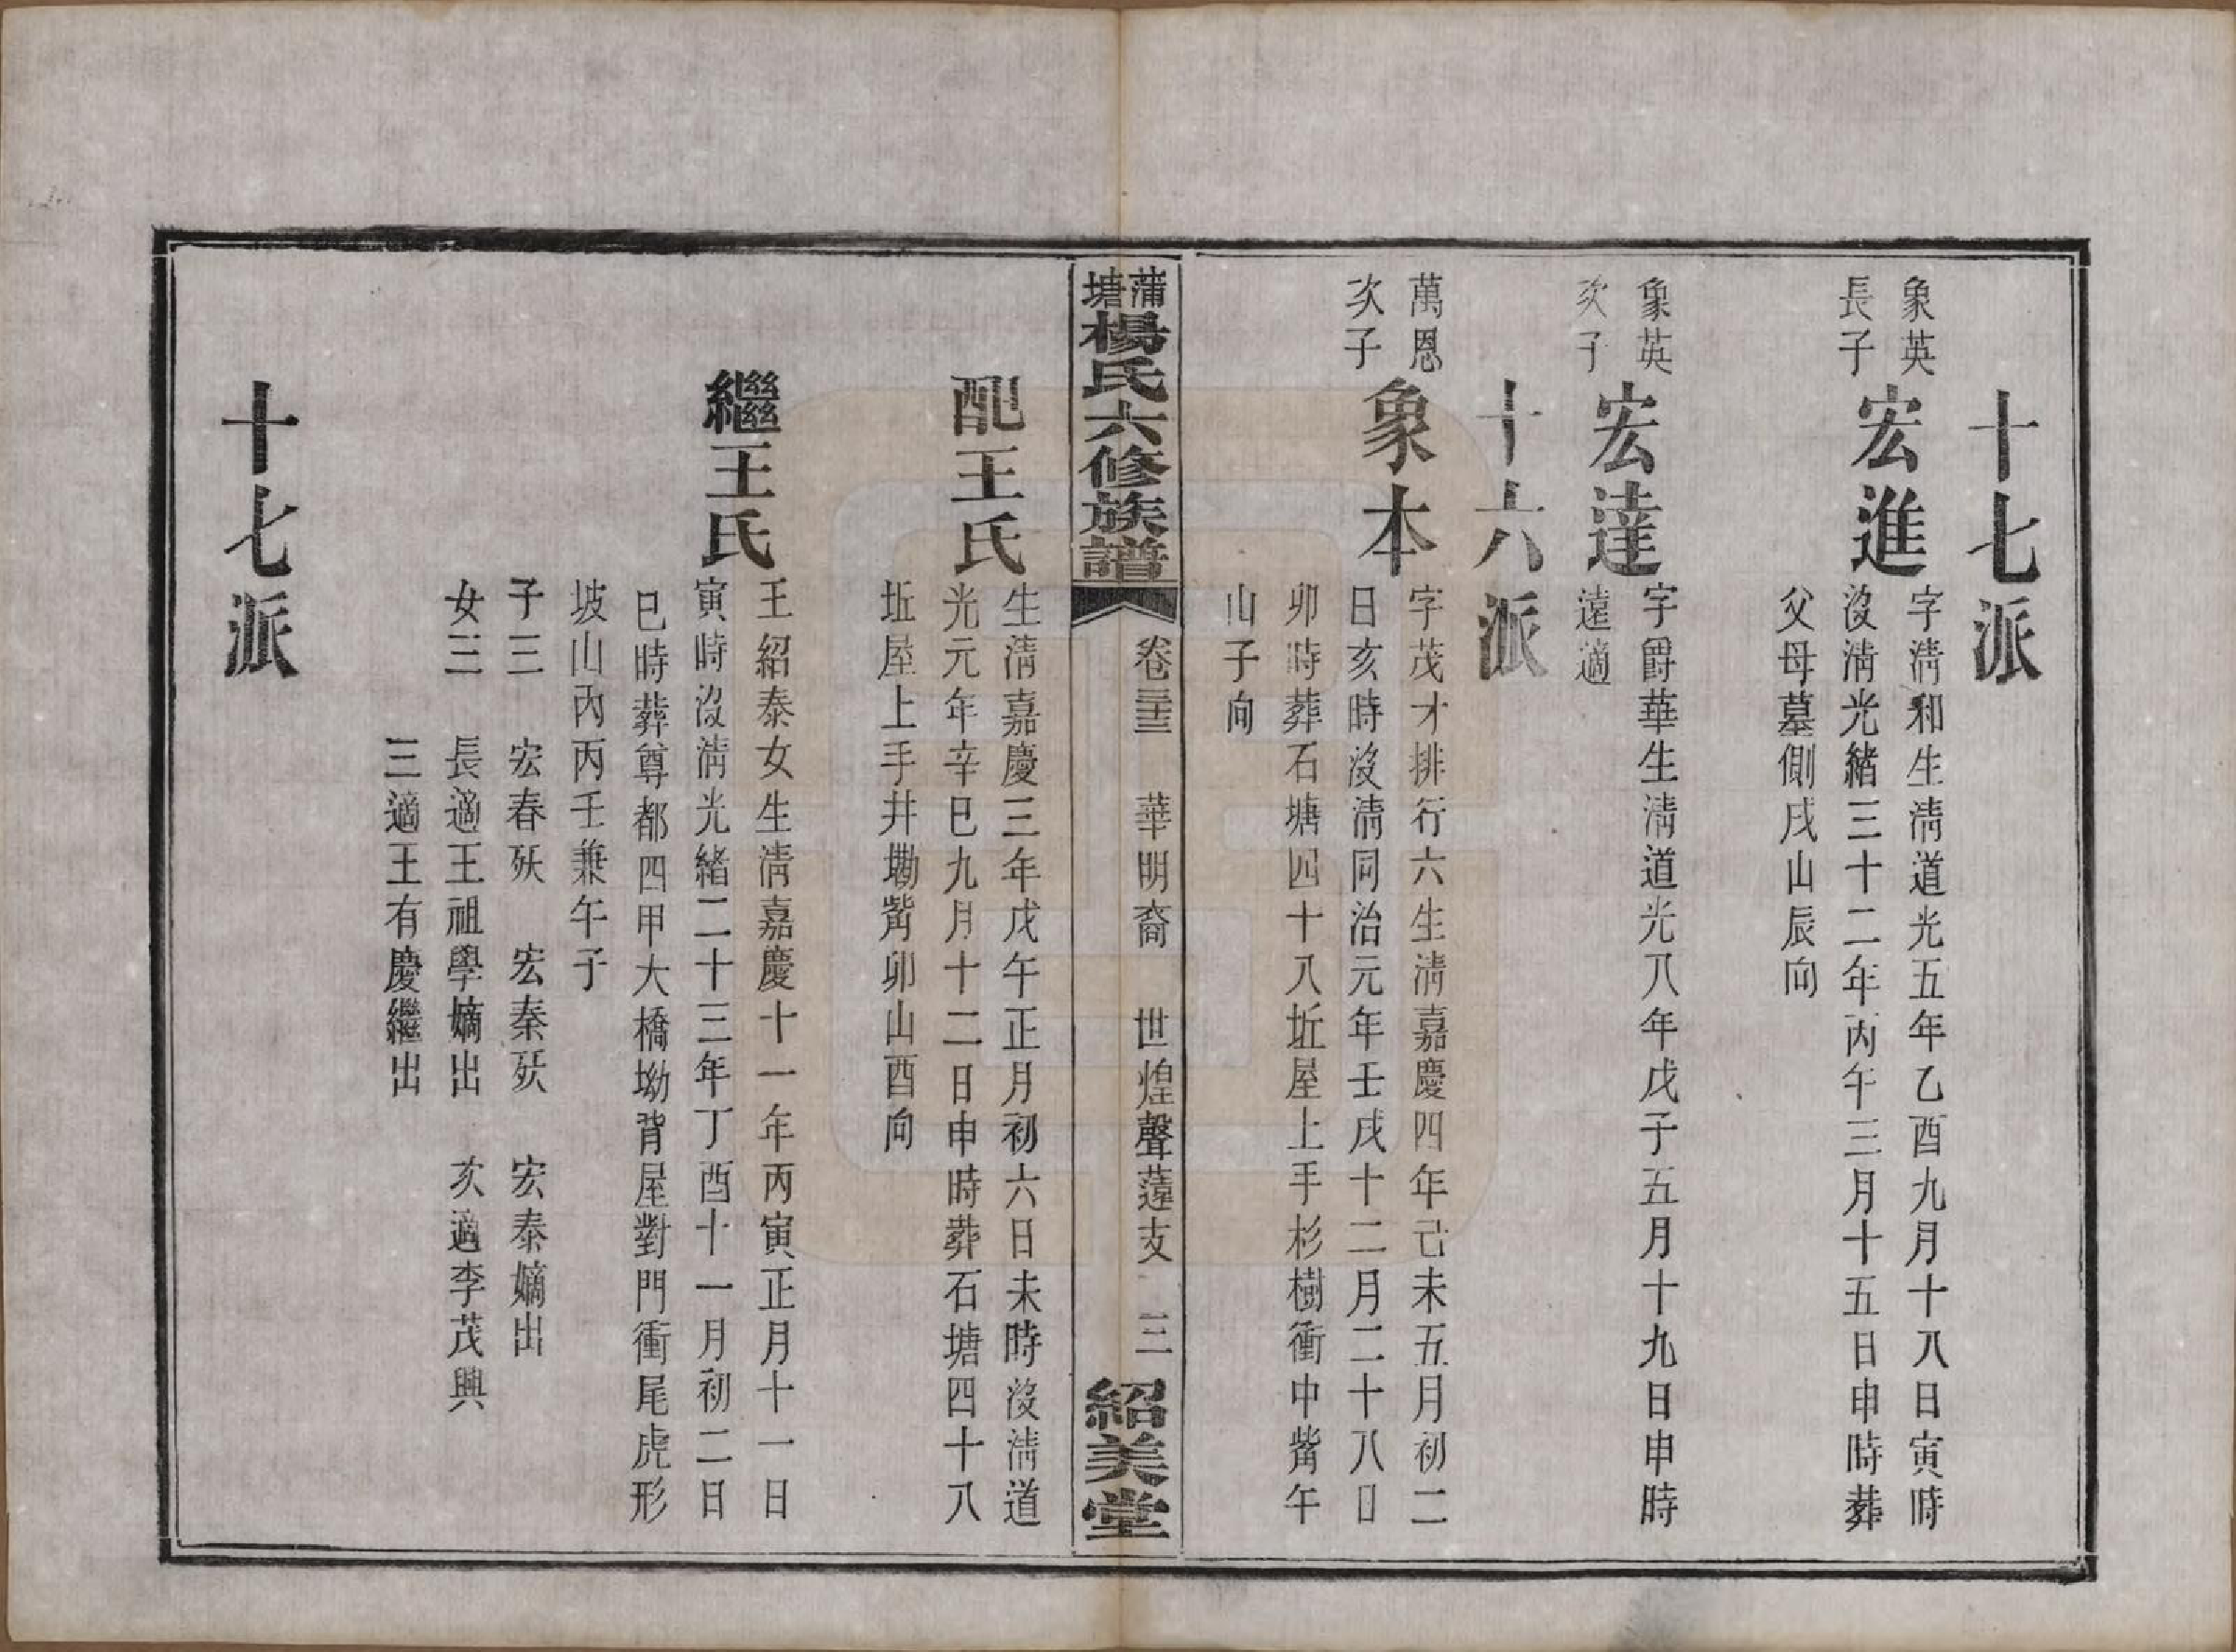 十七派
象英
長子
宏進
字淸和生淸道光五年乙酉九月十八日寅時
沒淸光緒三十二年丙午三月十五日申時葬
父母墓側戌山辰向
象英
次子
宏達
字爵華生淸道光八年戊子五月十九日申時
遠適
十六派
萬恩
次子
象本
字茂才排行六生淸嘉慶四年己未五月初二
日亥時沒淸同治元年壬戌十二月二十八日
卯時葬石塘四十八坵屋上手杉樹衝中觜午
山子向
蒲塘楊氏六修族譜
卷三十三 華明裔 世煌聲薘支 三
紹美堂
配王氏
生淸嘉慶三年戊午正月初六日未時沒淸道
光元年辛巳九月十二日申時葬石塘四十八
坵屋上手井墈觜卯山酉向
繼王氏
王紹泰女生淸嘉慶十一年丙寅正月十一日
寅時沒淸光緒二十三年丁酉十一月初二日
巳時葬尊都四甲大橋坳背屋對門衝尾虎形
坡山內丙壬兼午子
子三 宏春殀 宏秦殀 宏泰嫡出
女三 長適王祖學嫡出 次適李茂興
三適王有慶繼出
十七派